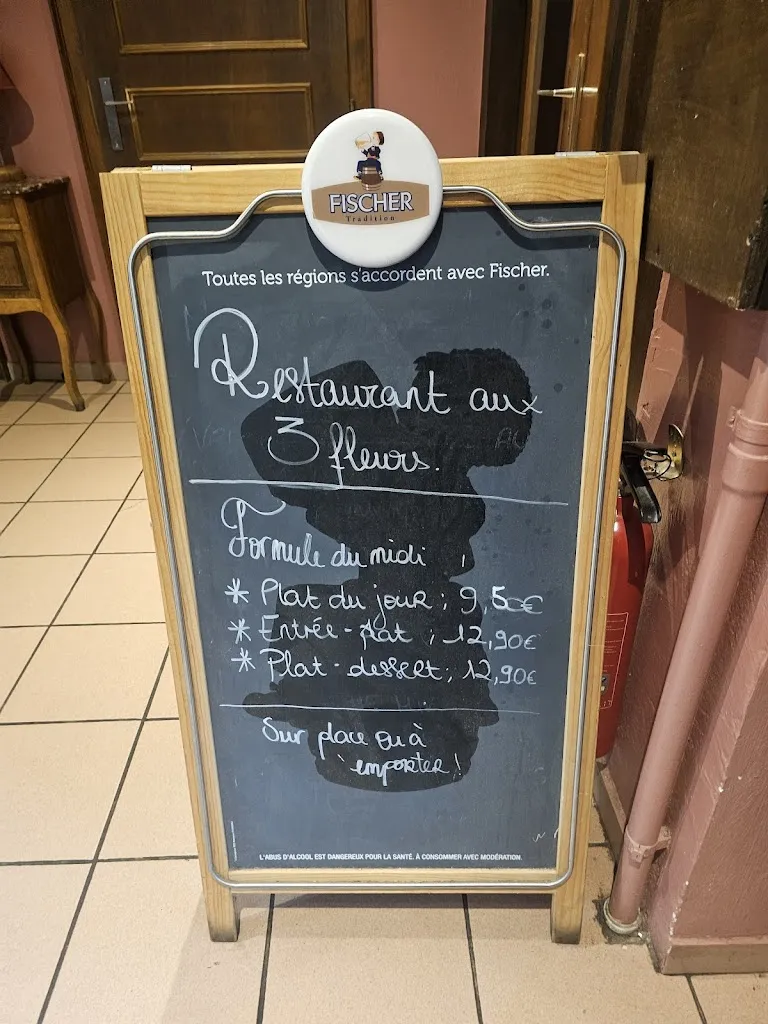 FISCHER
Tradition
Toutes les régions s'accordent avec Fischer.
Restaurant aux
3 fleurs.
Formule du midi
* Plat du jour ; 9,50€
* Entrée - plat ; 12,90€
* Plat - dessert ; 12,90€
Sur place ou à
emporter !
L'ABUS D'ALCOOL EST DANGEREUX POUR LA SANTÉ. À CONSOMMER AVEC MODÉRATION.